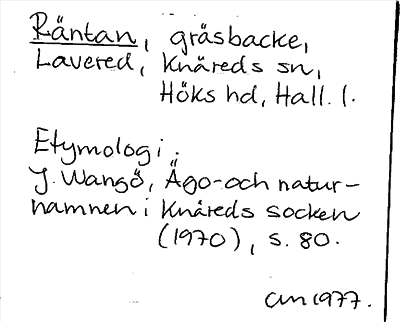 Räntan, gräsbacke,
Lavered, Knäreds sn,
Höks hd, Hall. l.
Etymologi:
J. Wangö, Ägo- och natur-
namnen i Knäreds socken
(1970), s. 80.
1977.